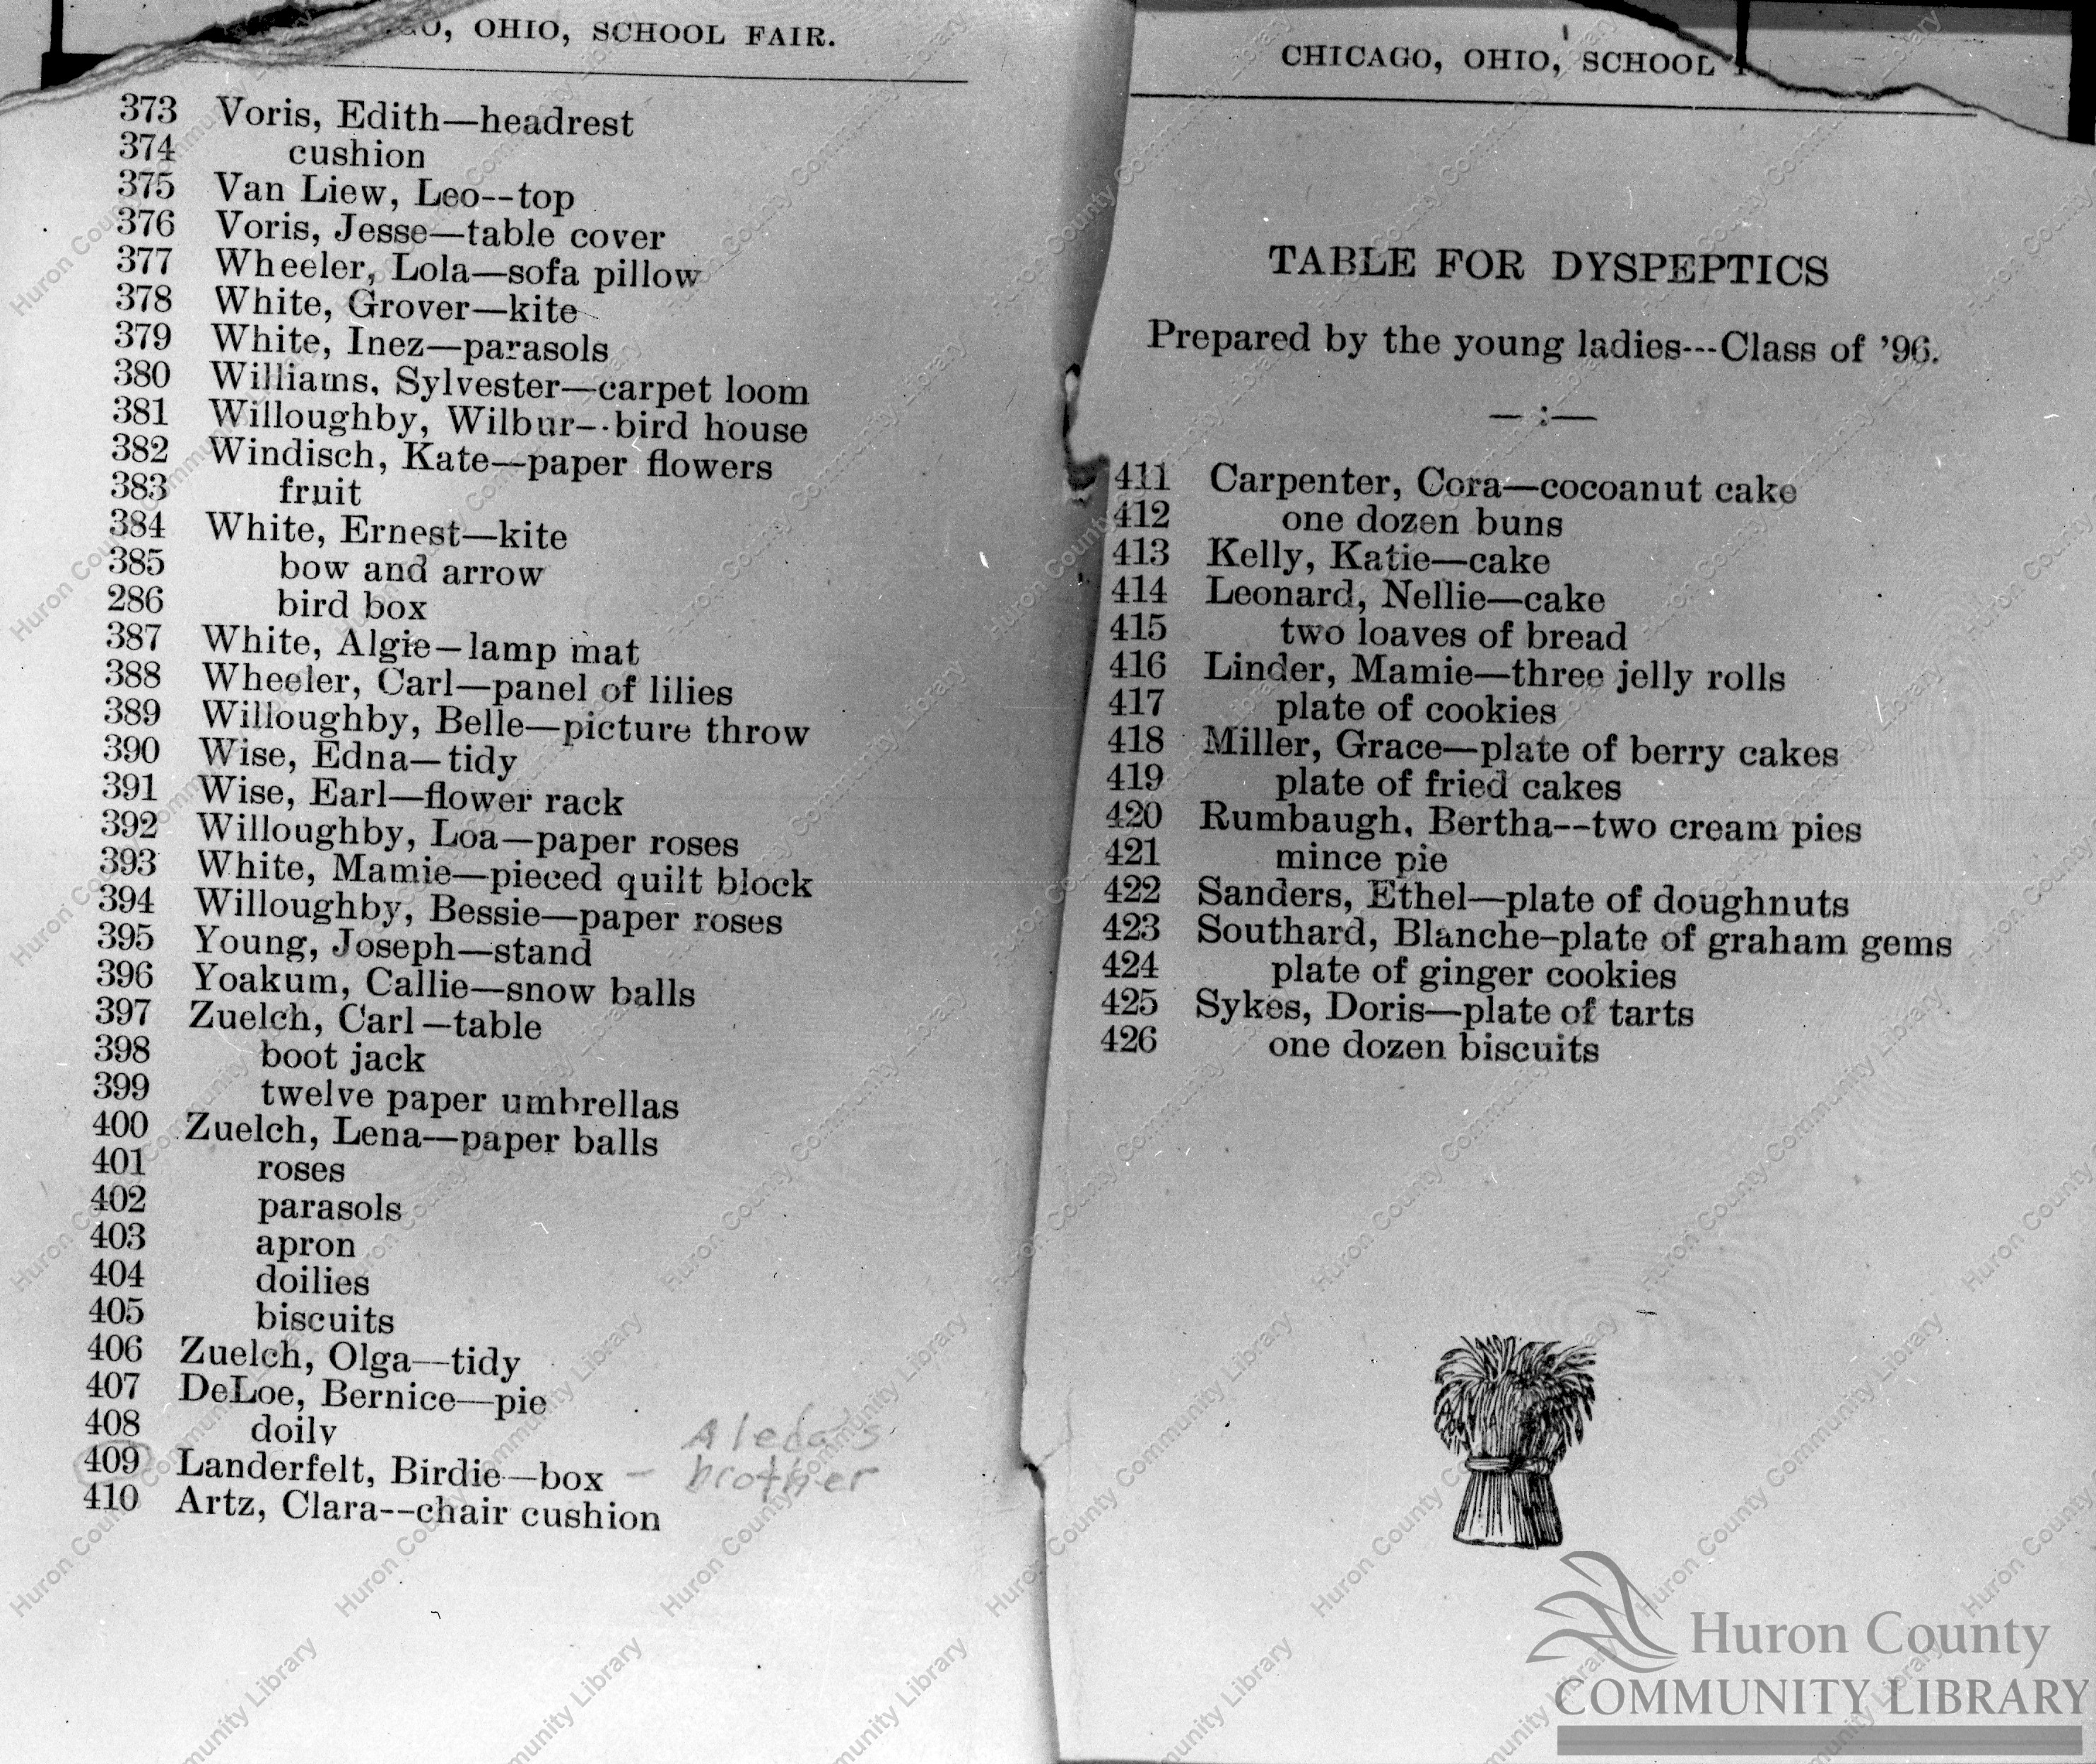 O, OHIO, SCHOOL FAIR.
373 Voris, Edith—headrest
374 cushion
375 Van Liew, Leo--top
376 Voris, Jesse—table cover
377 Wheeler, Lola—sofa pillow
378 White, Grover—kite
379 White, Inez—parasols
380 Williams, Sylvester—carpet loom
381 Willoughby, Wilbur--bird house
382 Windisch, Kate—paper flowers
383 fruit
384 White, Ernest—kite
385 bow and arrow
286 bird box
387 White, Algie—lamp mat
388 Wheeler, Carl—panel of lilies
389 Willoughby, Belle—picture throw
390 Wise, Edna—tidy
391 Wise, Earl—flower rack
392 Willoughby, Loa—paper roses
393 White, Mamie—pieced quilt block
394 Willoughby, Bessie—paper roses
395 Young, Joseph—stand
396 Yoakum, Callie—snow balls
397 Zuelch, Carl—table
398 boot jack
399 twelve paper umbrellas
400 Zuelch, Lena—paper balls
401 roses
402 parasols
403 apron
404 doilies
405 biscuits
406 Zuelch, Olga—tidy
407 DeLoe, Bernice—pie
408 doily
409 Landerfelt, Birdie—box - Aleda's brother
410 Artz, Clara--chair cushion
CHICAGO, OHIO, SCHOOL F
TABLE FOR DYSPEPTICS
Prepared by the young ladies---Class of '96.
—:—
411 Carpenter, Cora—cocoanut cake
412 one dozen buns
413 Kelly, Katie—cake
414 Leonard, Nellie—cake
415 two loaves of bread
416 Linder, Mamie—three jelly rolls
417 plate of cookies
418 Miller, Grace—plate of berry cakes
419 plate of fried cakes
420 Rumbaugh, Bertha--two cream pies
421 mince pie
422 Sanders, Ethel—plate of doughnuts
423 Southard, Blanche–plate of graham gems
424 plate of ginger cookies
425 Sykes, Doris—plate of tarts
426 one dozen biscuits
Huron County
COMMUNITY LIBRARY
Huron County Community Library